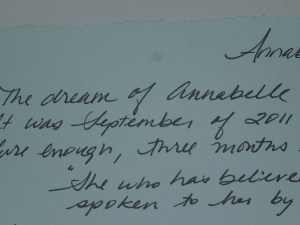 Annab
The dream of Annabelle
It was September of 2011
ure enough, three months
"She who has believe
spoken to her by